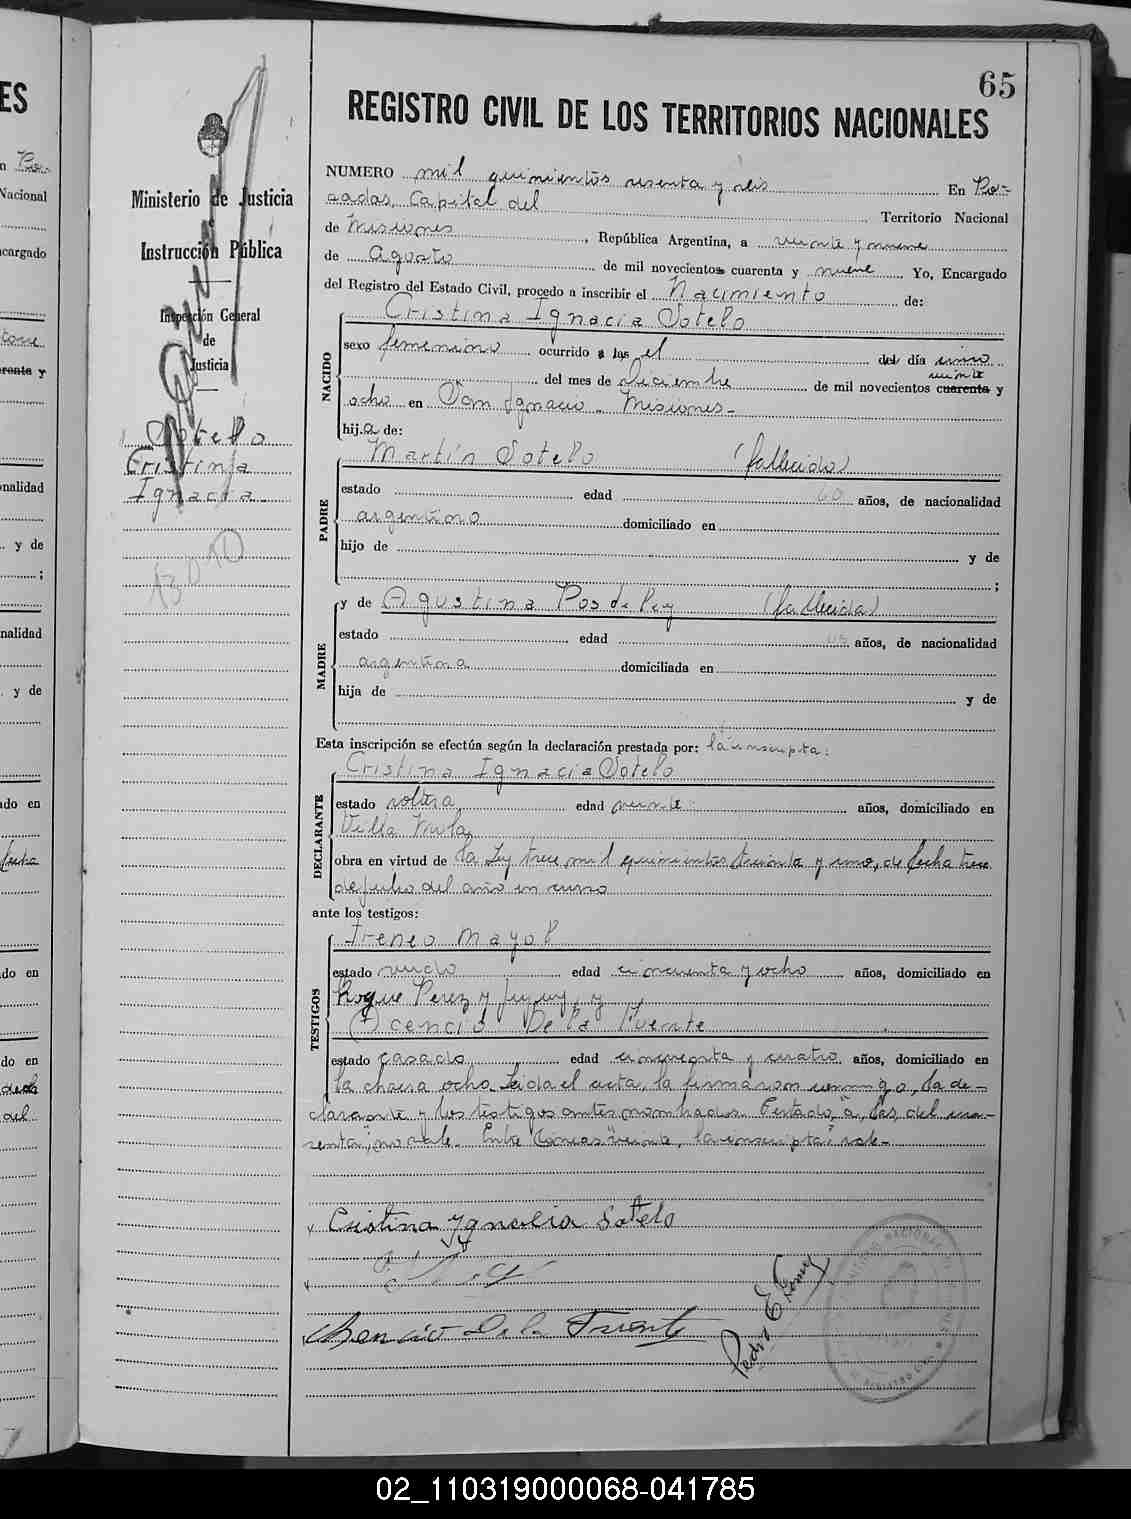 65
REGISTRO CIVIL DE LOS TERRITORIOS NACIONALES
Ministerio de Justicia
e
Instrucción Pública
Inspección General
de
Justicia
Sotelo
Cristina
Ignacia
NUMERO mil quinientos sesenta y seis En Po-
sadas, Capital del Territorio Nacional
de Misiones, República Argentina, a veinte y nueve
de Agosto de mil novecientos cuarenta y nueve Yo, Encargado
del Registro del Estado Civil, procedo a inscribir el Nacimiento de:
Cristina Ignacia Sotelo
NACIDO
sexo femenino ocurrido a las el del día cinco
veinte
del mes de diciembre de mil novecientos cuarenta y
ocho en San Ignacio - Misiones -
hija de:
Martín Sotelo (fallecido)
PADRE
estado edad años, de nacionalidad
argentino domiciliado en
hijo de y de
;
y de Agustina Pos de Ley (fallecida)
MADRE
estado edad años, de nacionalidad
argentina domiciliada en
hija de y de
Esta inscripción se efectúa según la declaración prestada por: la inscripta:
Cristina Ignacia Sotelo
DECLARANTE
estado soltera edad veinte años, domiciliado en
Villa Mola
obra en virtud de la Ley trece mil quinientos treinta y uno, de fecha trece
de julio del año en curso
ante los testigos:
Ireneo Mayol
TESTIGOS
estado viudo edad cincuenta y ocho años, domiciliado en
Roque Perez y Jujuy, y
Acencio De la Fuente
estado casado edad cincuenta y cuatro años, domiciliado en
la chacra ocho. Leida el acta, la firmaron conmigo, la de-
clarante y los testigos antes nombrados. Testado, "a, las, del cua-
renta", no vale. Entre líneas "veinte, la inscripta", vale -
Cristina Ygnacia Sotelo
Asencio De la Fuente
Pedro E Gomez
02_110319000068-041785